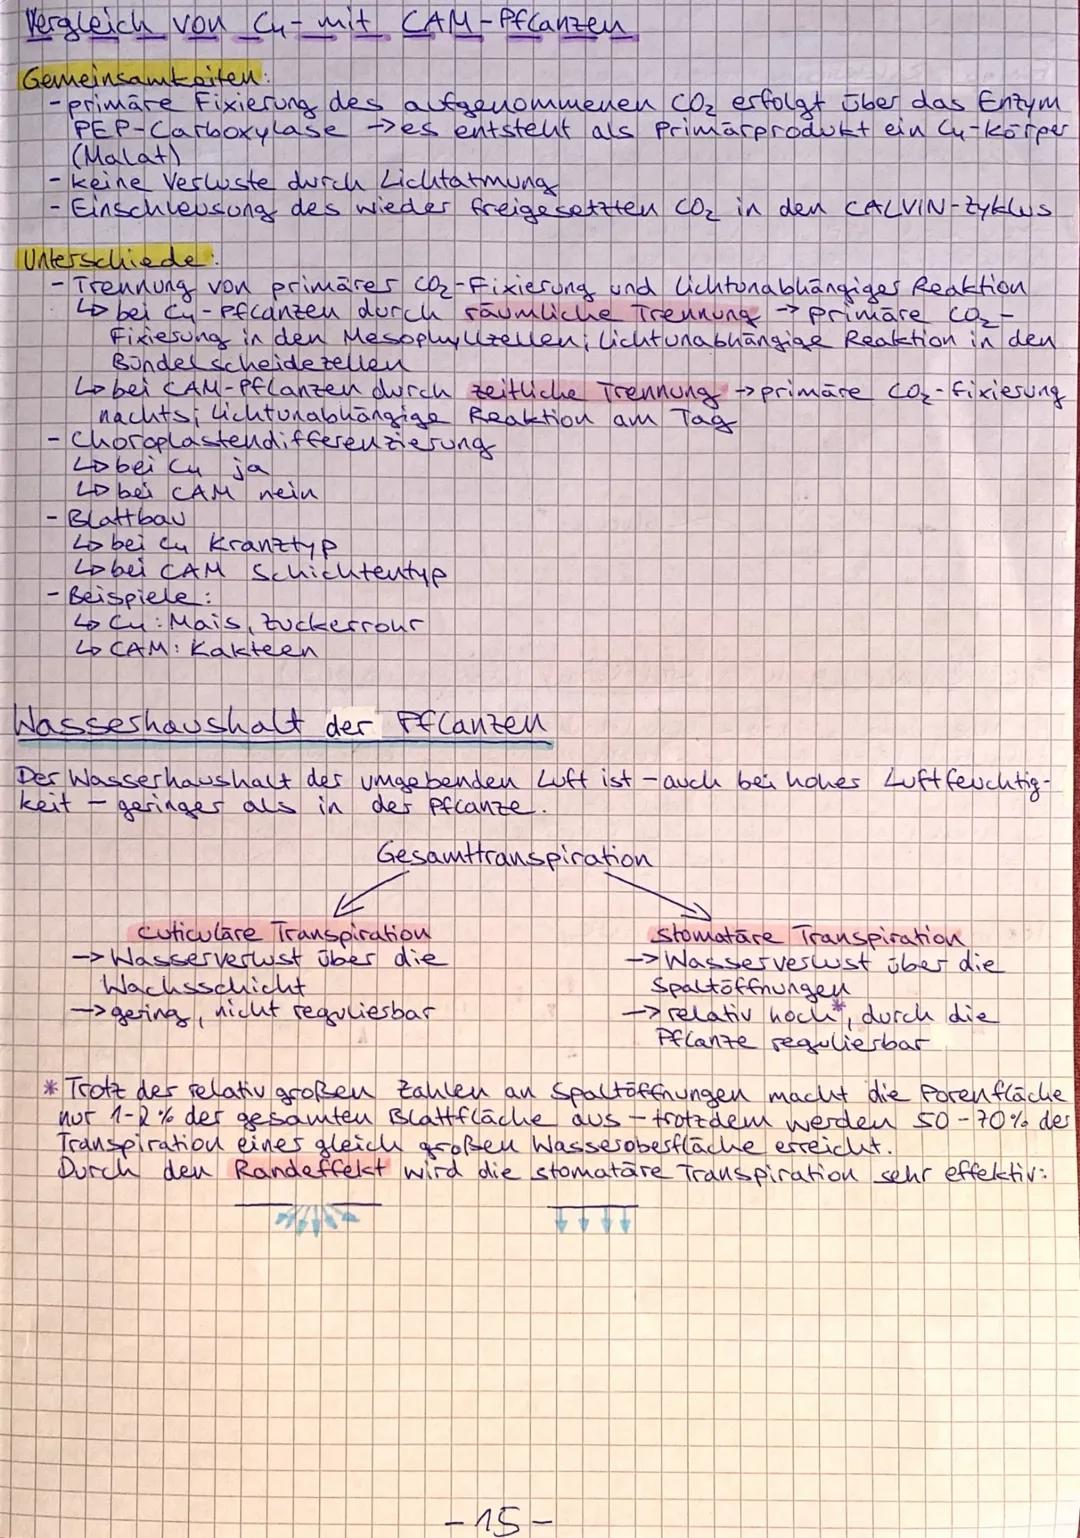 Vergleich von C4- mit CAM-Pflanzen
Gemeinsamkeiten:
- primäre Fixierung des aufgenommenen CO₂ erfolgt über das Enzym
PEP-Carboxylase → es entsteht als Primärprodukt ein C4-Körper
(Malat)
- keine Verluste durch Lichtatmung
- Einschleusung des wieder freigesetzten CO₂ in den CALVIN-Zyklus
Unterschiede:
- Trennung von primärer CO₂-Fixierung und lichtunabhängiger Reaktion
↳ bei C4-Pflanzen durch räumliche Trennung → primäre CO₂-
Fixierung in den Mesophyllzellen; lichtunabhängige Reaktion in den
Bündelscheidezellen
↳ bei CAM-Pflanzen durch zeitliche Trennung → primäre CO₂-Fixierung
nachts; lichtunabhängige Reaktion am Tag
- Choroplastendifferenzierung
↳ bei C4 ja
↳ bei CAM nein
- Blattbau
↳ bei C4 Kranztyp
↳ bei CAM Schichtentyp
- Beispiele:
↳ C4: Mais, Zuckerrohr
↳ CAM: Kakteen
Wasserhaushalt der Pflanzen
Der Wasserhaushalt der umgebenden Luft ist - auch bei hoher Luftfeuchtig-
keit - geringer als in der Pflanze.
Gesamttranspiration
cuticuläre Transpiration
→ Wasserverlust über die
Wachsschicht
→ gering, nicht regulierbar
stomatäre Transpiration
→ Wasserverlust über die
Spaltöffnungen
→ relativ hoch*, durch die
Pflanze regulierbar
* Trotz der relativ großen Zahlen an Spaltöffnungen macht die Porenfläche
nur 1-2% der gesamten Blattfläche aus - trotzdem werden 50-70% der
Transpiration einer gleich großen Wasseroberfläche erreicht.
Durch den Randeffekt wird die stomatäre Transpiration sehr effektiv:
- 15 -